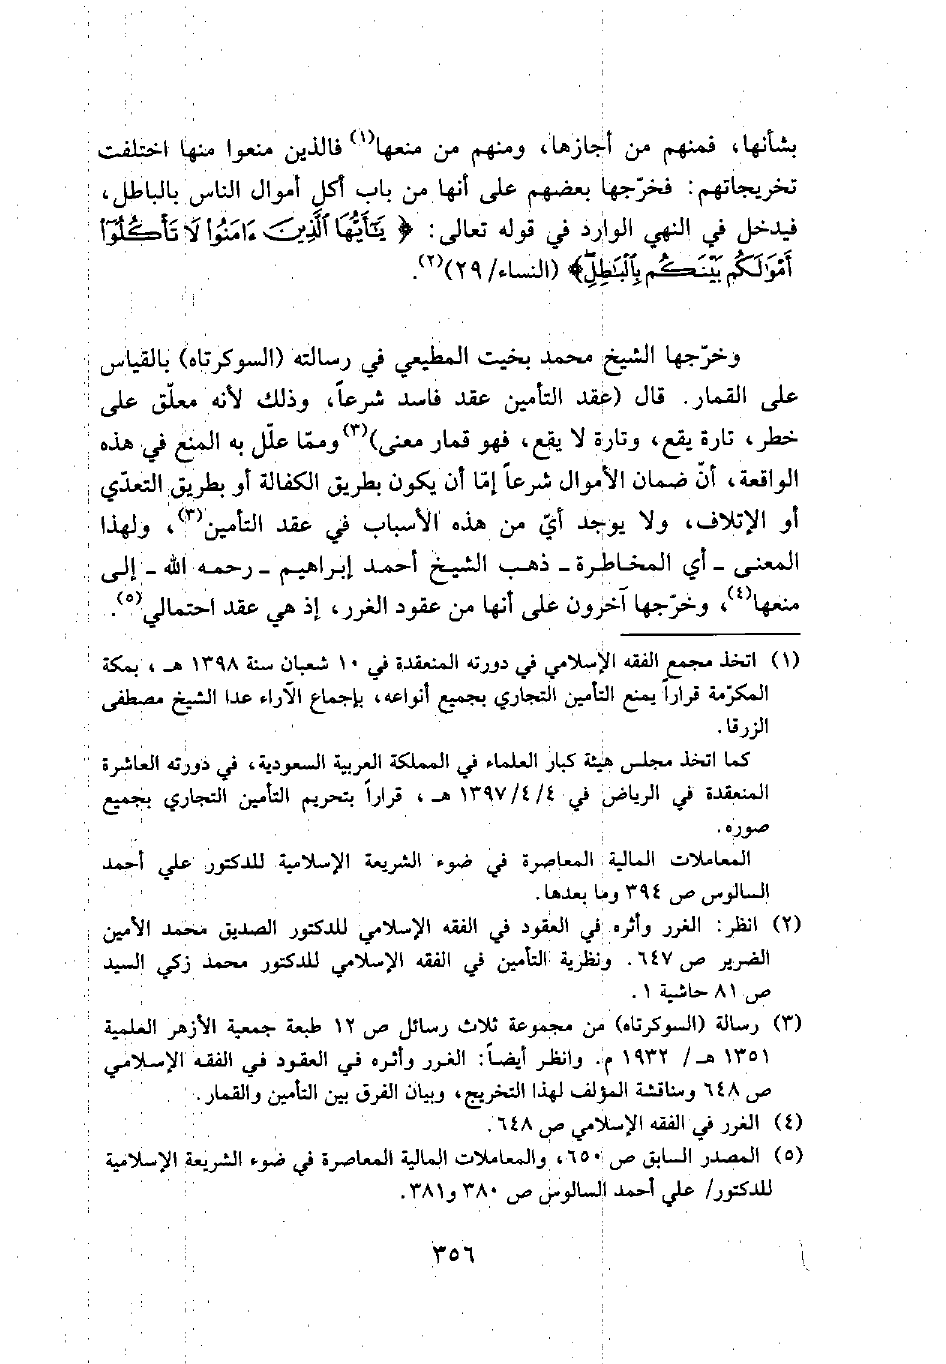 بشأنها، فمنهم من أجازها، ومنهم من منعها(١) فالذين منعوا منها اختلفت
تخريجاتهم: فخرّجها بعضهم على أنها من باب أكل أموال الناس بالباطل،
فيدخل في النهي الوارد في قوله تعالى: ﴿ يَٰٓأَيُّهَا ٱلَّذِينَ ءَامَنُوا۟ لَا تَأْكُلُوٓا۟
أَمْوَٰلَكُم بَيْنَكُم بِٱلْبَٰطِلِ﴾ (النساء/ ٢٩)(٢).
وخرّجها الشيخ محمد بخيت المطيعي في رسالته (السوكرتاه) بالقياس
على القمار. قال (عقد التأمين عقد فاسد شرعاً، وذلك لأنه معلّق على
خطر، تارة يقع، وتارة لا يقع، فهو قمار معنى)(٣) وممّا علّل به المنع في هذه
الواقعة، أنّ ضمان الأموال شرعاً إمّا أن يكون بطريق الكفالة أو بطريق التعدّي
أو الإتلاف، ولا يوجد أيّ من هذه الأسباب في عقد التأمين(٣)، ولهذا
المعنى ـ أي المخاطرة ـ ذهب الشيخ أحمد إبراهيم ـ رحمه الله ـ إلى
منعها(٤)، وخرّجها آخرون على أنها من عقود الغرر، إذ هي عقد احتمالي(٥).
(١) اتخذ مجمع الفقه الإسلامي في دورته المنعقدة في ١٠ شعبان سنة ١٣٩٨ هـ، بمكة
المكرّمة قراراً يمنع التأمين التجاري بجميع أنواعه، بإجماع الآراء عدا الشيخ مصطفى
الزرقا.
كما اتخذ مجلس هيئة كبار العلماء في المملكة العربية السعودية، في دورته العاشرة
المنعقدة في الرياض في ١٣٩٧/٤/٤ هـ، قراراً بتحريم التأمين التجاري بجميع
صوره.
المعاملات المالية المعاصرة في ضوء الشريعة الإسلامية للدكتور علي أحمد
السالوس ص ٣٩٤ وما بعدها.
(٢) انظر: الغرر وأثره في العقود في الفقه الإسلامي للدكتور الصديق محمد الأمين
الضرير ص ٦٤٧. ونظرية التأمين في الفقه الإسلامي للدكتور محمد زكي السيد
ص ٨١ حاشية ١.
(٣) رسالة (السوكرتاه) من مجموعة ثلاث رسائل ص ١٢ طبعة جمعية الأزهر العلمية
١٣٥١ هـ/ ١٩٣٢ م. وانظر أيضاً: الغرر وأثره في العقود في الفقه الإسلامي
ص ٦٤٨ ومناقشة المؤلف لهذا التخريج، وبيان الفرق بين التأمين والقمار.
(٤) الغرر في الفقه الإسلامي ص ٦٤٨.
(٥) المصدر السابق ص ٦٥٠، والمعاملات المالية المعاصرة في ضوء الشريعة الإسلامية
للدكتور/ علي أحمد السالوس ص ٣٨٠ و٣٨١.
٣٥٦